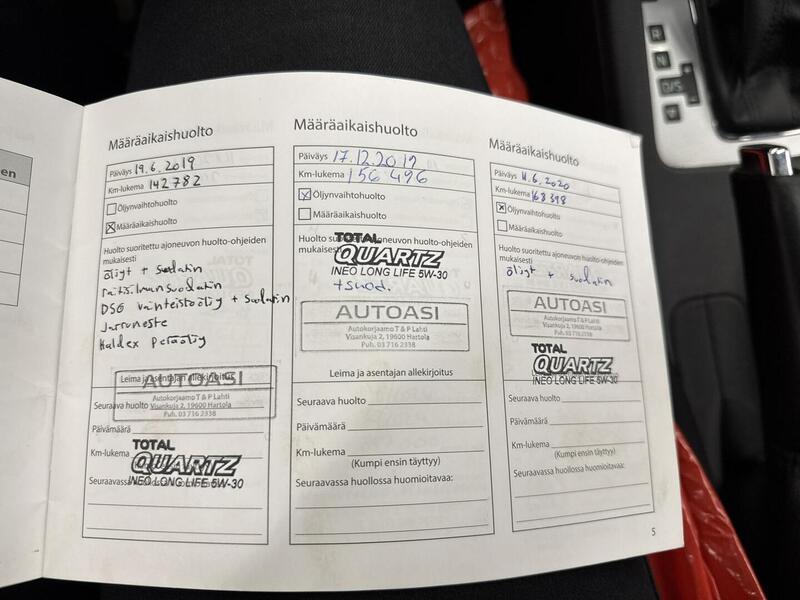 en
Määräaikaishuolto
Päiväys 19.6.2019
Km-lukema 142782
Öljynvaihtohuolto
Määräaikaishuolto
Huolto suoritettu ajoneuvon huolto-ohjeiden
mukaisesti
öljyt + suodatin
raitisilmansuodatin
DSG vaihteistoöljy + suodatin
Jarruneste
Haldex peräöljy
Leima ja asentajan allekirjoitus
AUTOASI
Autokorjaamo T & P Lahti
Visankuja 2, 19600 Hartola
Puh. 03 716 2338
Seuraava huolto
Päivämäärä
Km-lukema
TOTAL
QUARTZ
INEO LONG LIFE 5W-30
Seuraavassa
Määräaikaishuolto
Päiväys 17.12.2019
Km-lukema 156 496
Öljynvaihtohuolto
Määräaikaishuolto
Huolto suoritettu ajoneuvon huolto-ohjeiden
mukaisesti
TOTAL
QUARTZ
INEO LONG LIFE 5W-30
+ suod.
AUTOASI
Autokorjaamo T & P Lahti
Visankuja 2, 19600 Hartola
Puh. 03 716 2338
Leima ja asentajan allekirjoitus
Seuraava huolto
Päivämäärä
Km-lukema
(Kumpi ensin täyttyy)
Seuraavassa huollossa huomioitavaa:
Määräaikaishuolto
Päiväys 11.6.2020
Km-lukema 168398
Öljynvaihtohuolto
Määräaikaishuolto
Huolto suoritettu ajoneuvon huolto-ohjeiden
mukaisesti
öljyt + suodatin
AUTOASI
Autokorjaamo T & P Lahti
Visankuja 2, 19600 Hartola
Puh. 03 716 2338
TOTAL
QUARTZ
INEO LONG LIFE 5W-30
Seuraava huolto
Päivämäärä
Km-lukema
(Kumpi ensin täyttyy)
Seuraavassa huollossa huomioitavaa:
5
R
N
D/S
+